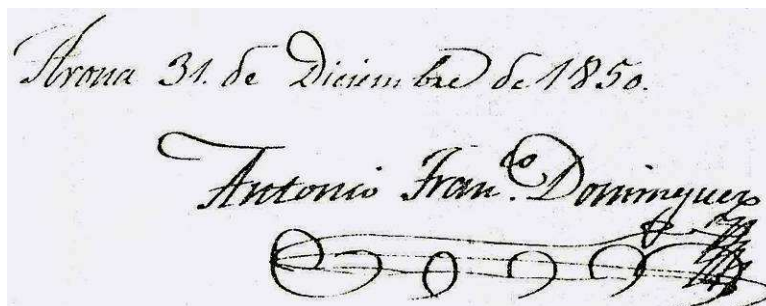 Arona 31. de Diciembre de 1850.
Antonio Fran.co Dominguez